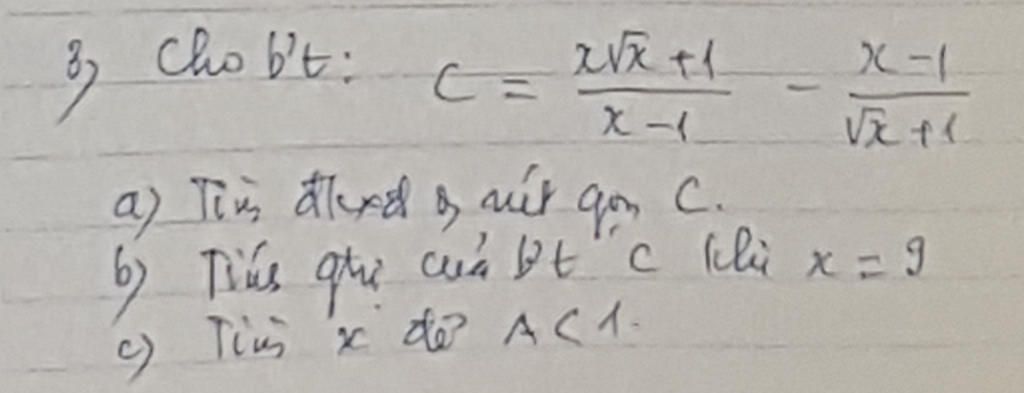 3) Cho b't: C = \frac{x\sqrt{x}+1}{x-1} - \frac{x-1}{\sqrt{x}+1}
a) Tìm đkxđ & rút gọn C.
b) Tính gtrị của b't C khi x = 9
c) Tìm x để A < 1.